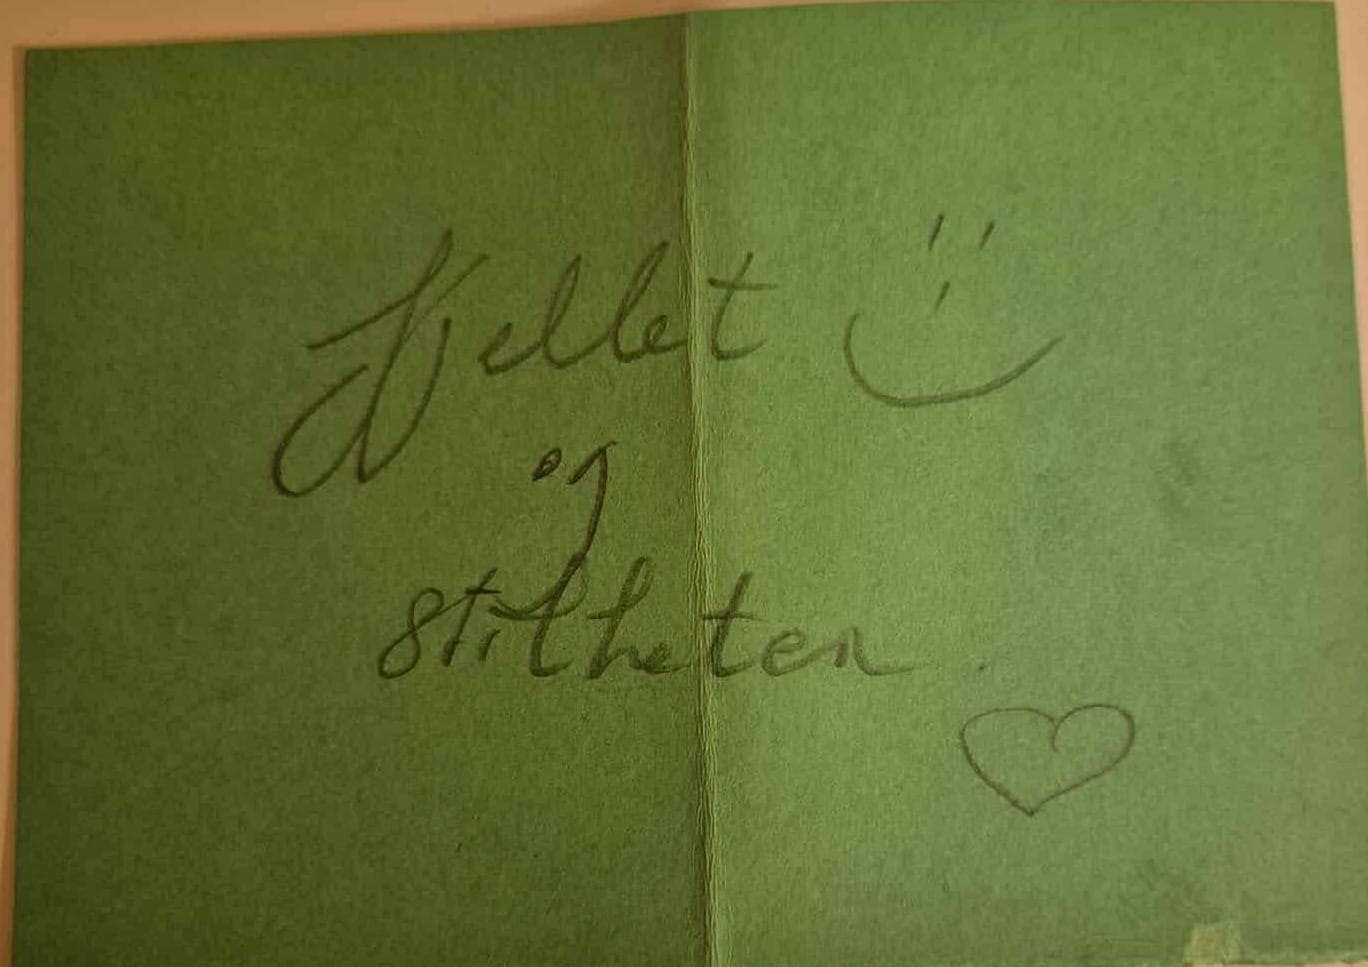 fjellet
og
stillheten.